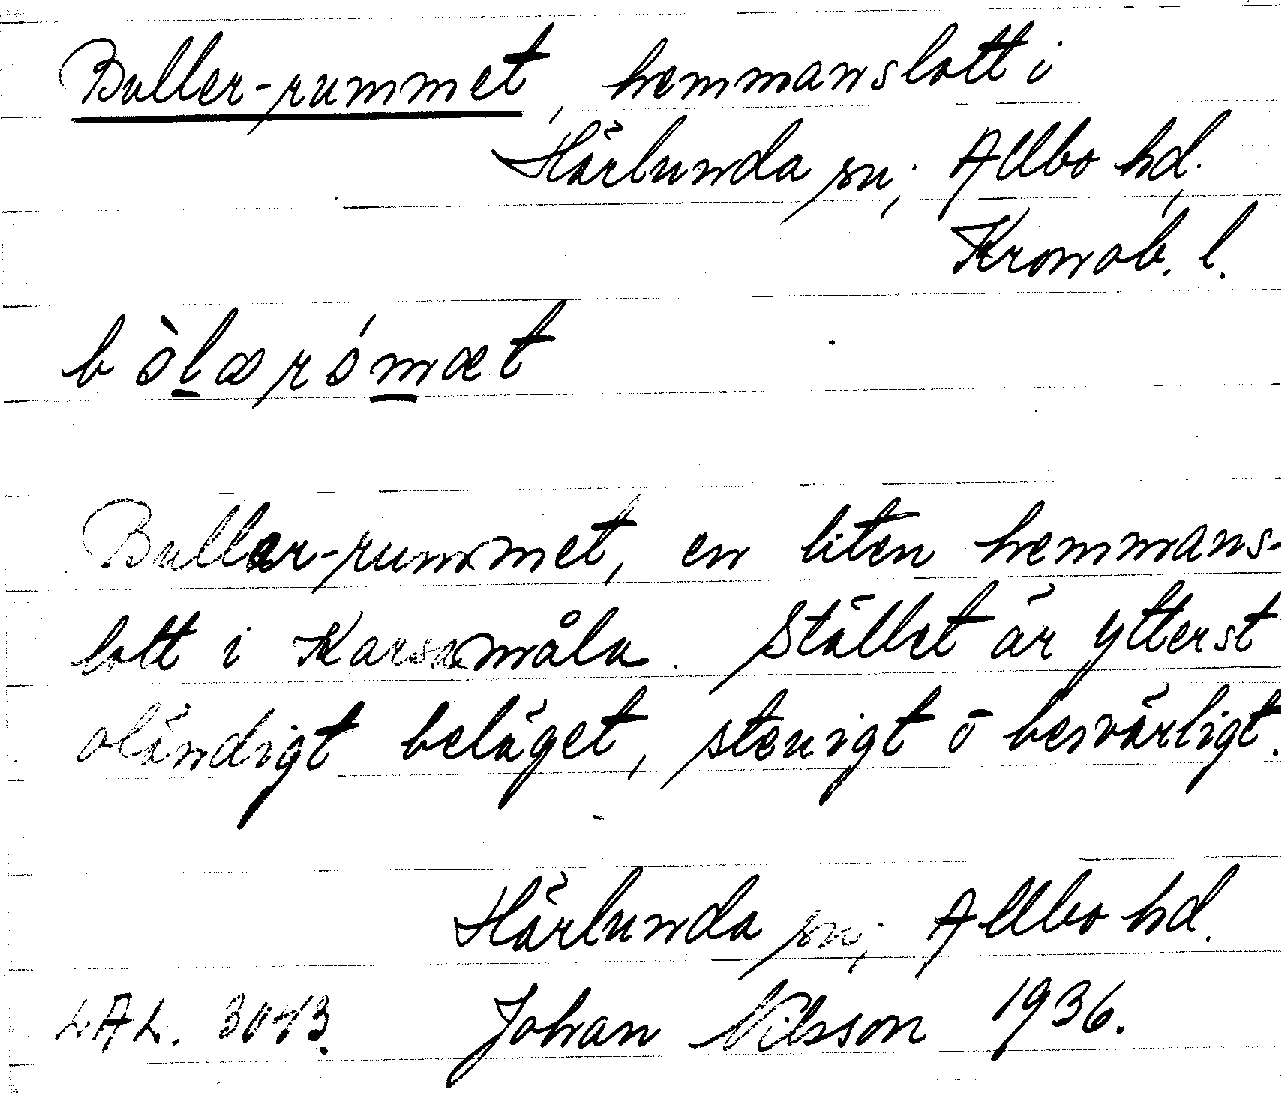 Buller-rummet, hemmanslott i
Härlunda sn; Allbo hd.
Kronob. l.
bòlærómæt
Buller-rummet, en liten hemmans-
lott i Karsamåla. Stället är ytterst
oländigt beläget, stenigt o besvärligt.
Härlunda sn; Allbo hd.
LAL. Johan Nilsson 1936.